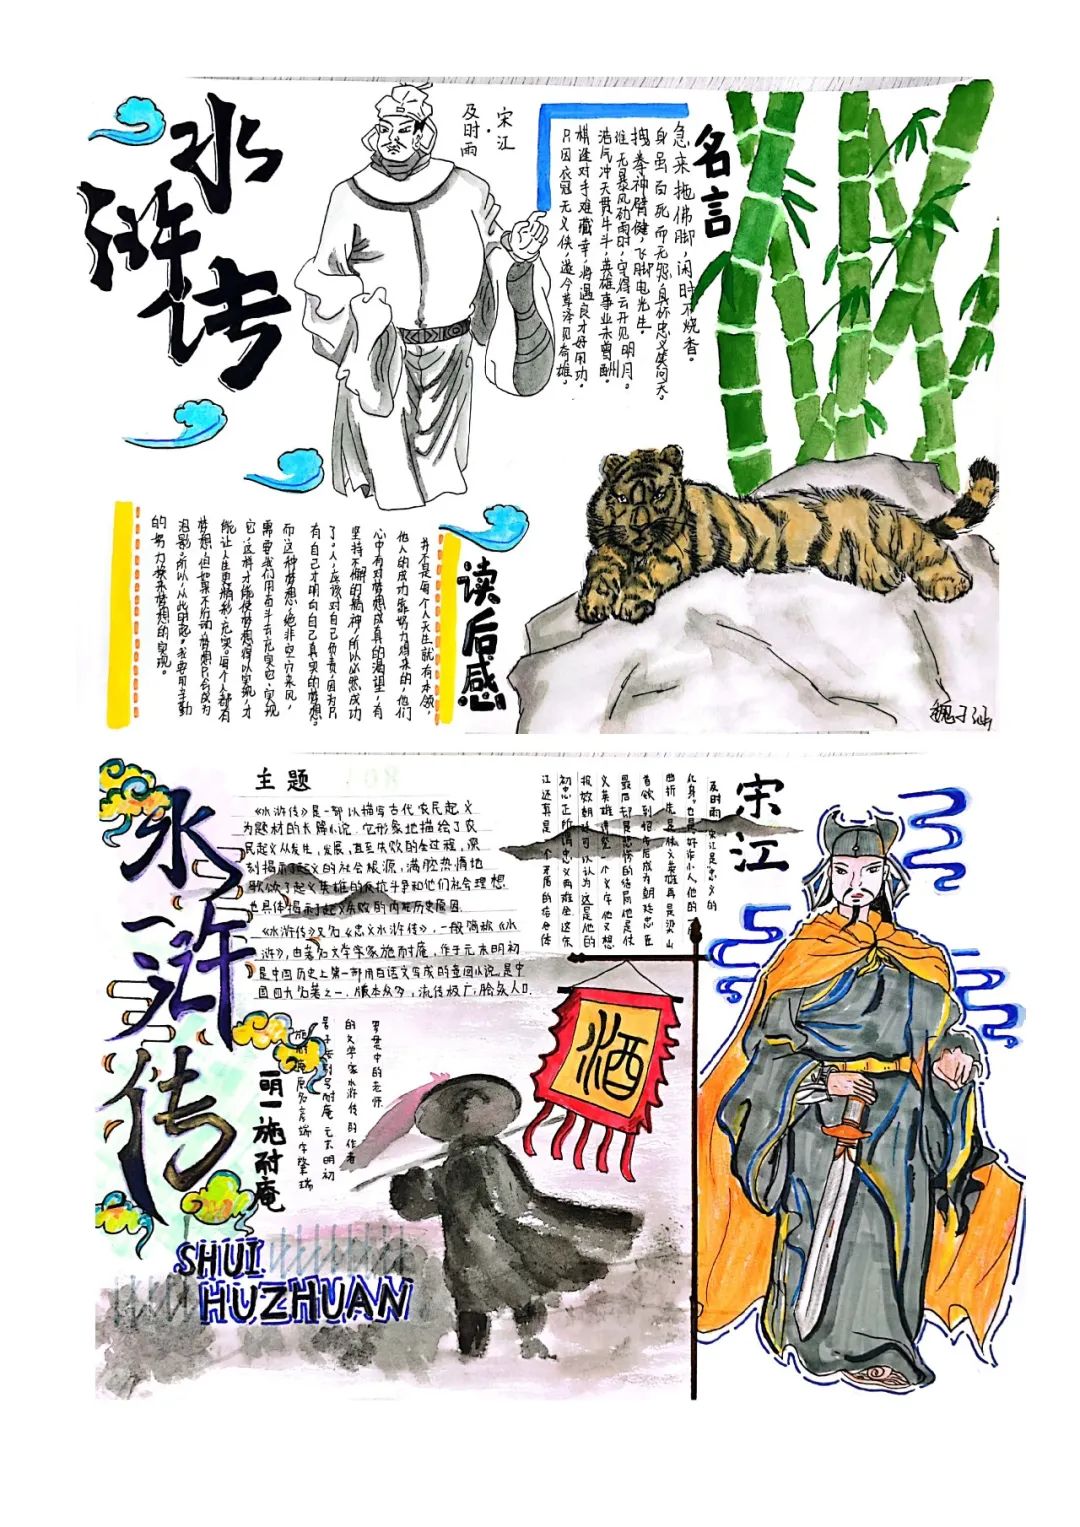 水浒传
宋江
及时雨
名言
急来抱佛脚，闲时不烧香。
身虽向死而无怨，真称忠义笑问天。
拽拳神臂健，飞脚电光生。
谁无暴风劲雨时，守得云开见明月。
浩气冲天贯牛斗，英雄事业未曾酬。
棋逢对手难藏幸，将遇良才好用功。
只因衣冠无义侠，遂令草泽见奇雄。
读后感
并不是每个人天生就有本领，
他人的成功靠努力得来的，他们
心中有对梦想成真的渴望，有
坚持不懈的精神，所以必然成功
了。人，应该对自己负责，因为只
有自己才明白自己真实的梦想。
而这种梦想，绝非空穴来风，
需要我们用奋斗去充实它，实现
它，这样才能使梦想得以实现，才
能让人生更精彩、充实。每个人都有
梦想，但如果不行动，梦想只会成为
泡影，所以，从此时起，我要用辛勤
的努力换来梦想的实现。
魏子涵
水浒传
主题
《水浒传》是一部以描写古代农民起义
为题材的长篇小说。它形象地描绘了农
民起义从发生，发展，直至失败的全过程，深
刻揭示了起义的社会根源，满腔热情地
歌颂了起义英雄的反抗斗争和他们社会理想，
也具体揭示了起义失败的内在历史原因。
《水浒传》又名《忠义水浒传》，一般简称《水
浒》，由著名文学家施耐庵，作于元末明初
是中国历史上第一部用白话文写成的章回小说，是中
国四大名著之一，版本众多，流传极广，脍炙人口。
宋江
及时雨，宋江是忠义的
化身，也是奸诈小人，他的
最后却是悲惨的结局，他是仗
江还真是一个矛盾的结合体
明一施耐庵
罗贯中的老师
的文学家水浒传的作者
酒
SHUI
HUZHUAN